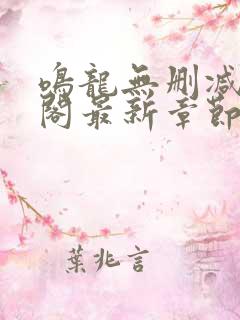 鳴龍無刪減
閣最新章節
葉兆言